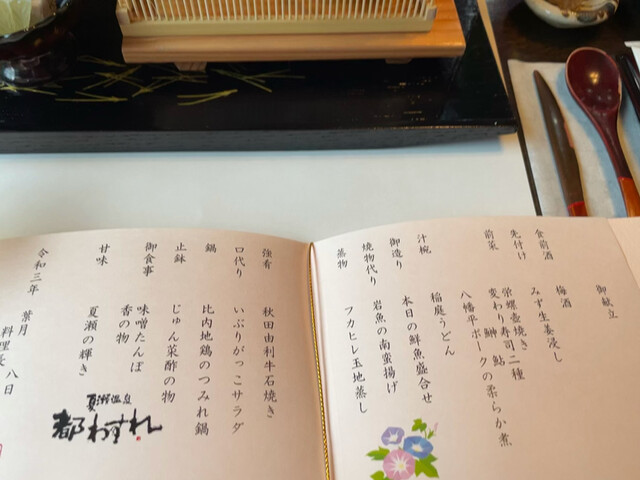 御献立
食前酒 梅酒
先付け みず生姜浸し
前菜 栄螺壷焼き
変わり寿司二種
鰰 鮎
八幡平ポークの柔らか煮
汁椀 稲庭うどん
御造り 本日の鮮魚盛合せ
焼物代り 岩魚の南蛮揚げ
蒸物 フカヒレ玉地蒸し
強肴 秋田由利牛石焼き
口代り いぶりがっこサラダ
鍋 比内地鶏のつみれ鍋
止鉢 じゅん菜酢の物
御食事 味噌たんぽ
香の物
甘味 夏瀬の輝き
夏瀬温泉
都わすれ
令和三年 葉月 八日
料理長